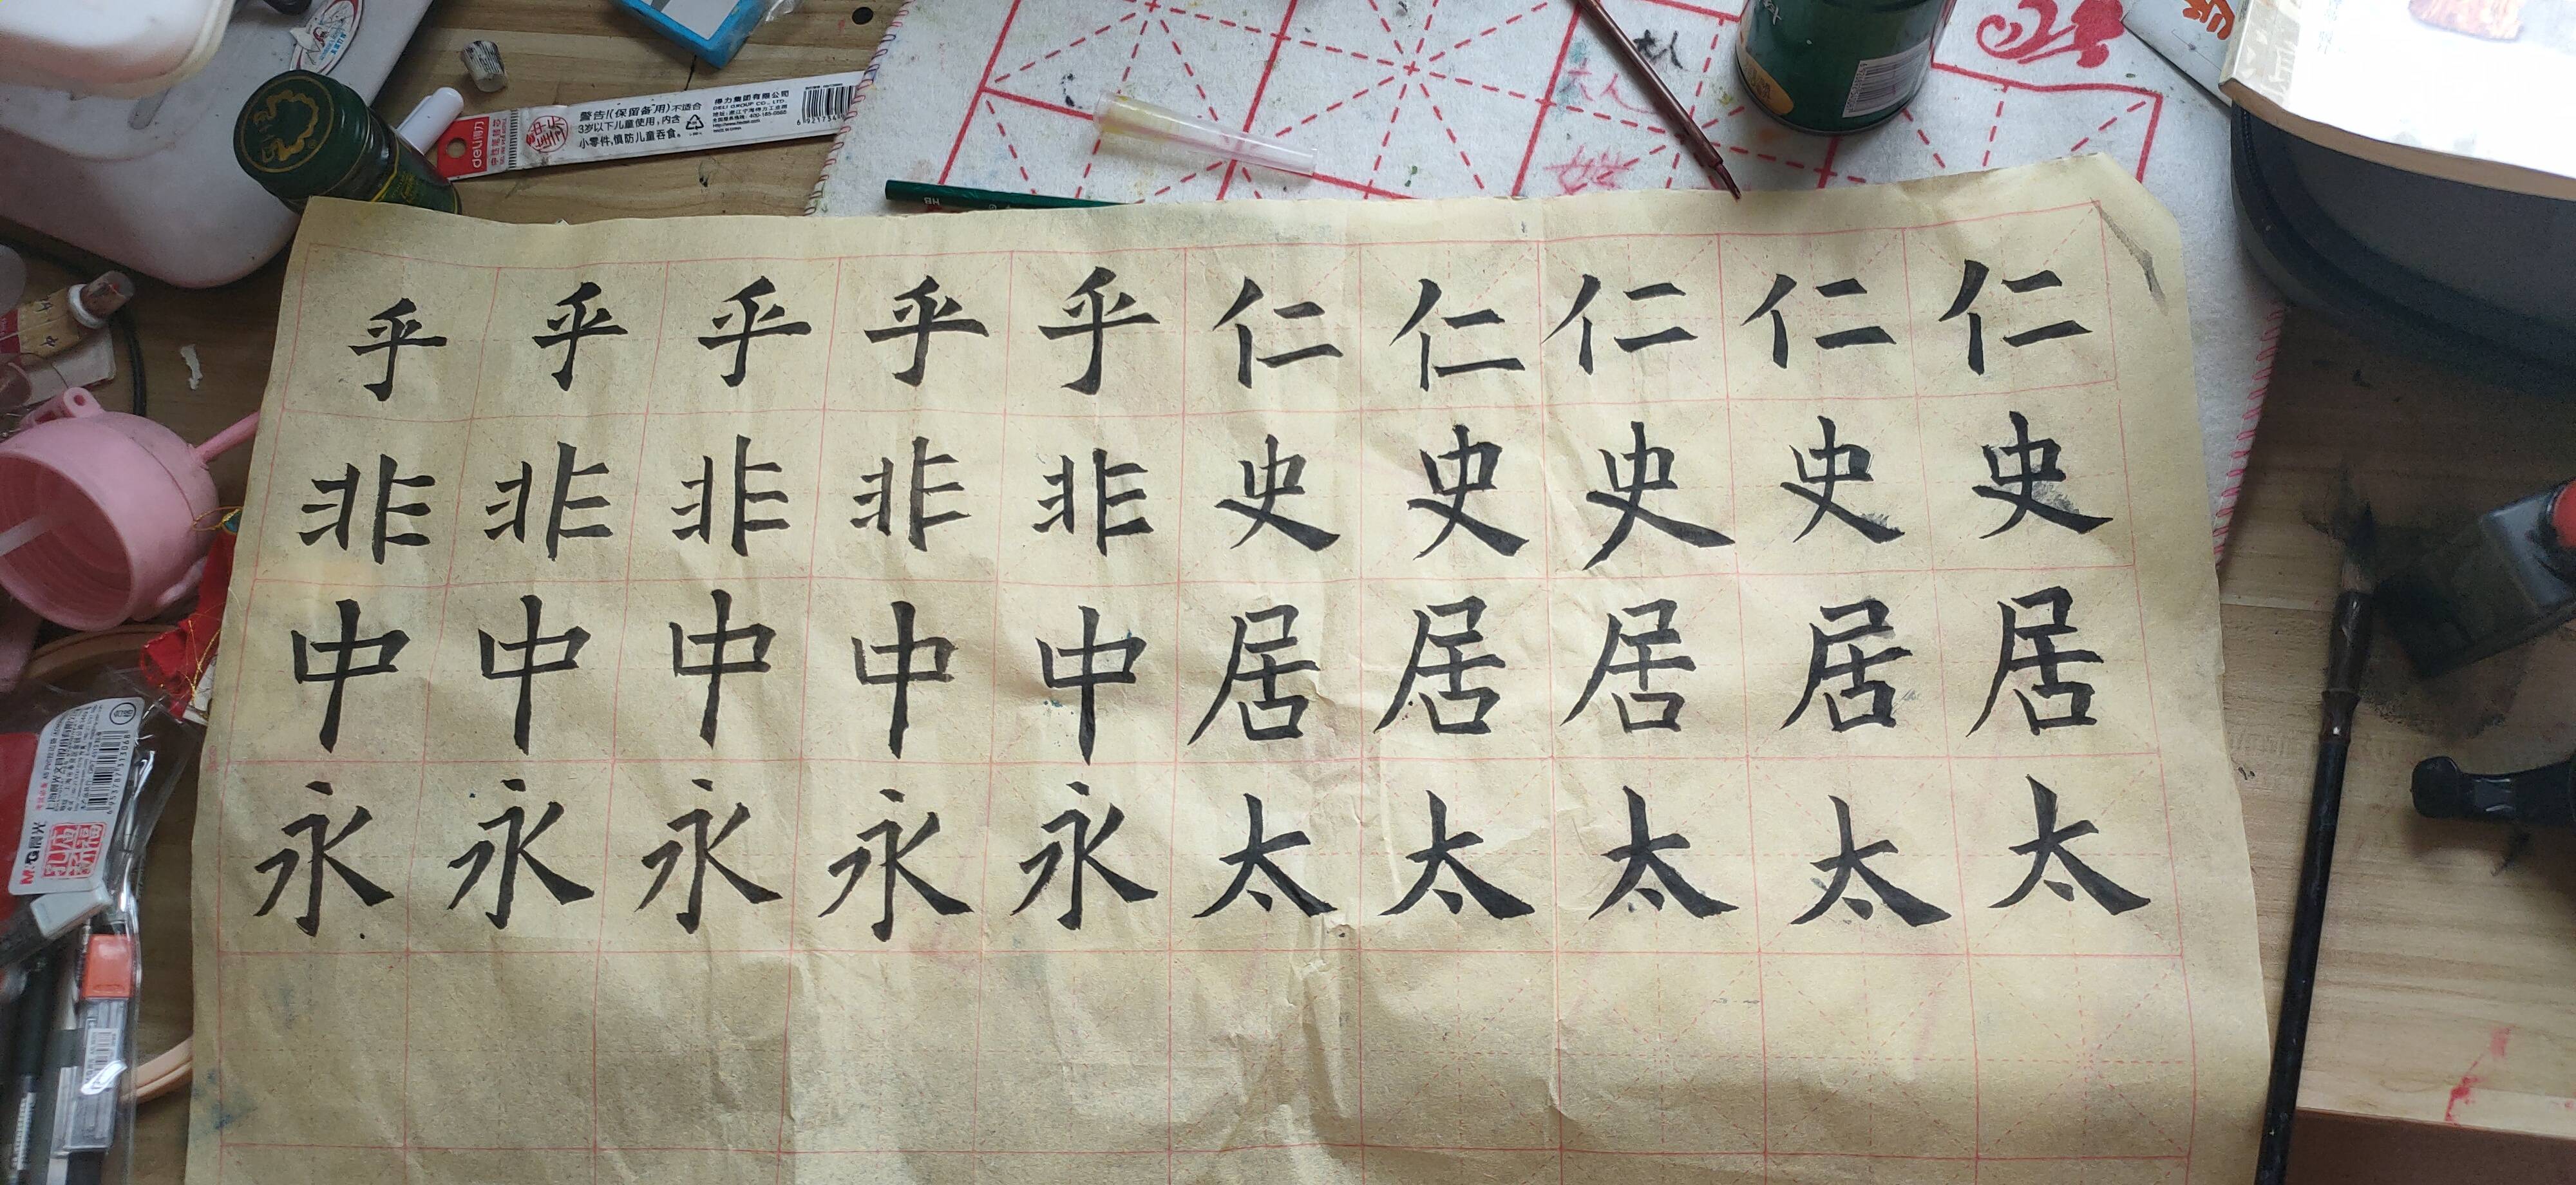 警告!(保留备用)不适合
3岁以下儿童使用,内含
小零件,慎防儿童吞食。
得力集团有限公司
DELI GROUP CO., LTD.
deli得力
大人
大人
HB
乎乎乎乎乎仁仁仁仁仁
非非非非非史史史史史
中中中中中居居居居居
永永永永永太太太太太
M&G晨光